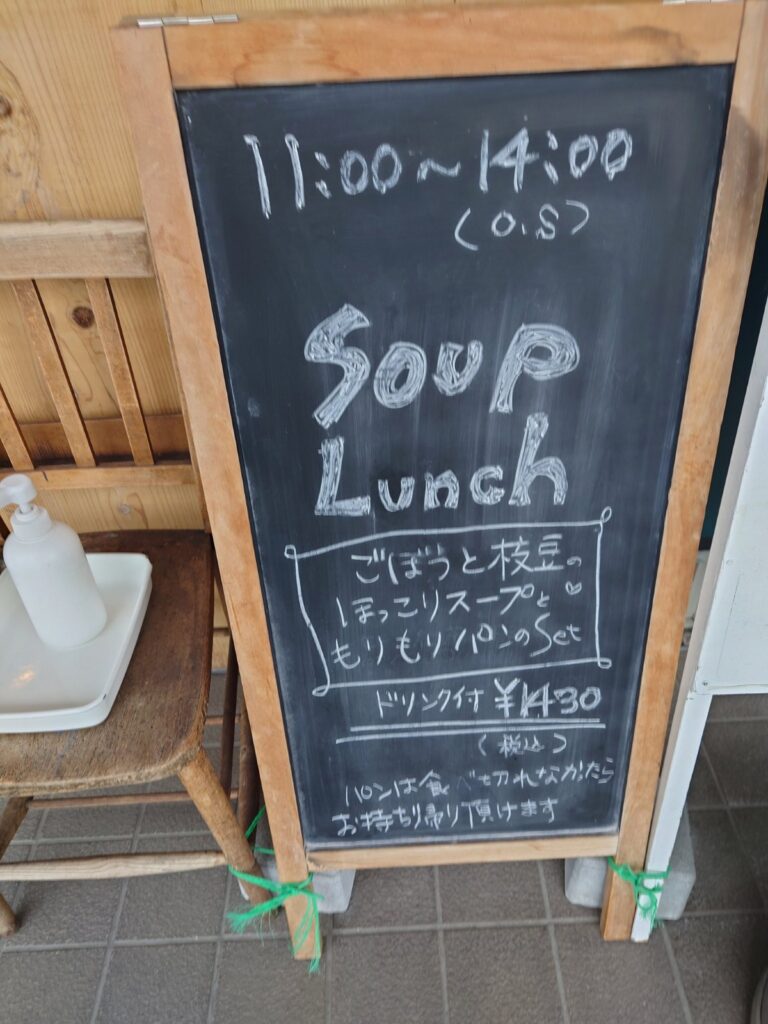 11:00~14:00
(O.S)
Soup
Lunch
ごぼうと枝豆の
ほっこりスープと
もりもりパンのSet
ドリンク付 ¥1430
(税込)
パンは食べ切れなかったら
お持ち帰り頂けます